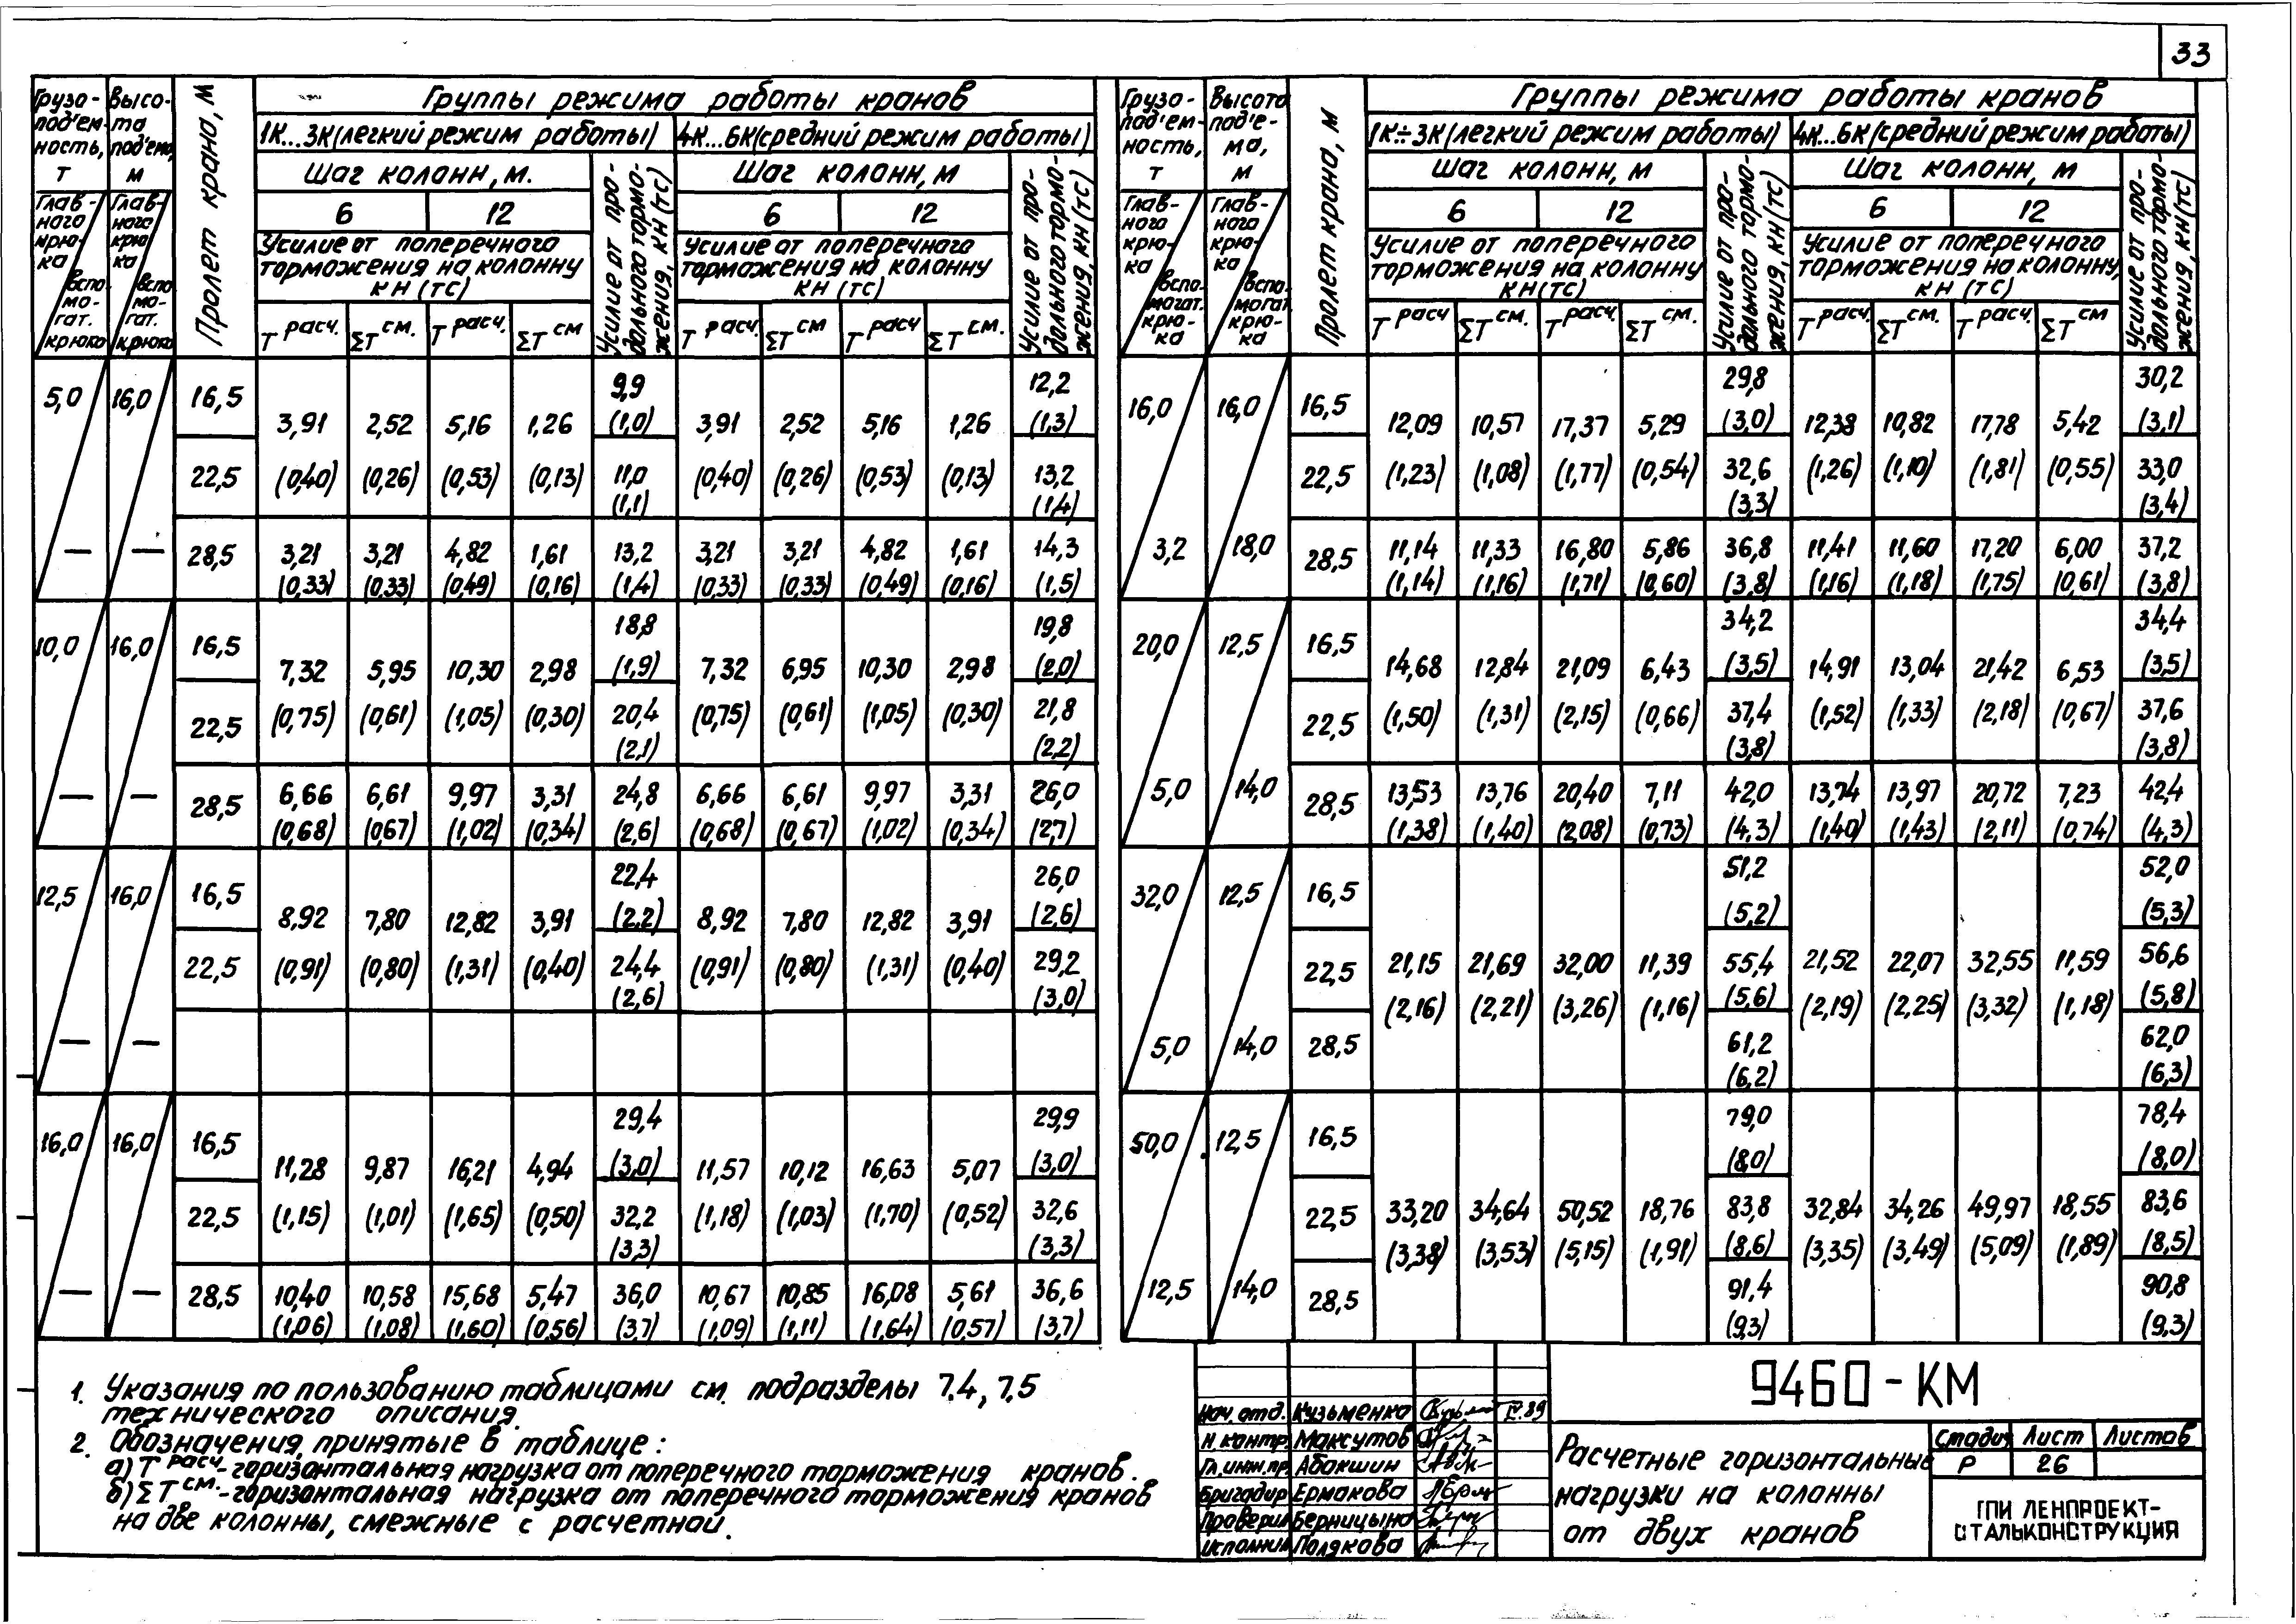 33
Грузо- Высо- Пролет крана, м Группы режима работы кранов
под'ем- та
ность, под'ема,
т м
1К...3К(легкий режим работы) 4К...6К(средний режим работы)
Шаг колонн, м. Усилие от про-дольного тормо-жения, кН (тс) Шаг колонн, м Усилие от про-дольного тормо-жения, кН (тс)
Глав-ного крю-ка Вспо-мо-гат. крюка Глав-ного крю-ка Вспо-мо-гат. крюка
6 12 6 12
Усилие от поперечного Усилие от поперечного
торможения на колонну торможения на колонну
кН (тс) кН (тс)
Т расч. ΣТ см. Т расч. ΣТ см. Т расч. ΣТ см Т расч ΣТ см.
5,0 16,0 16,5 9,9 12,2
3,91 2,52 5,16 1,26 (1,0) 3,91 2,52 5,16 1,26 (1,3)
22,5 (0,40) (0,26) (0,53) (0,13) 11,0 (0,40) (0,26) (0,53) (0,13) 13,2
(1,1) (1,4)
— — 28,5 3,21 3,21 4,82 1,61 13,2 3,21 3,21 4,82 1,61 14,3
(0,33) (0,33) (0,49) (0,16) (1,4) (0,33) (0,33) (0,49) (0,16) (1,5)
10,0 16,0 16,5 18,8 19,8
7,32 5,95 10,30 2,98 (1,9) 7,32 6,95 10,30 2,98 (2,0)
22,5 (0,75) (0,61) (1,05) (0,30) 20,4 (0,75) (0,61) (1,05) (0,30) 21,8
(2,1) (2,2)
— — 28,5 6,66 6,61 9,97 3,31 24,8 6,66 6,61 9,97 3,31 26,0
(0,68) (067) (1,02) (0,34) (2,6) (0,68) (0,67) (1,02) (0,34) (2,7)
12,5 16,0 16,5 22,4 26,0
8,92 7,80 12,82 3,91 (2,2) 8,92 7,80 12,82 3,91 (2,6)
22,5 (0,91) (0,80) (1,31) (0,40) 24,4 (0,91) (0,80) (1,31) (0,40) 29,2
(2,6) (3,0)
— —
16,0 16,0 16,5 29,4 29,9
11,28 9,87 16,21 4,94 (3,0) 11,57 10,12 16,63 5,07 (3,0)
22,5 (1,15) (1,01) (1,65) (0,50) 32,2 (1,18) (1,03) (1,70) (0,52) 32,6
(3,3) (3,3)
— — 28,5 10,40 10,58 15,68 5,47 36,0 10,67 10,85 16,08 5,61 36,6
(1,06) (1,08) (1,60) (0,56) (3,7) (1,09) (1,11) (1,64) (0,57) (3,7)
Грузо- Высота Пролет крана, м Группы режима работы кранов
под'ем- под'е-
ность, ма,
т м
1К÷3К(легкий режим работы) 4К...6К(средний режим работы)
Шаг колонн, м Усилие от про-дольного тормо-жения, кН (тс) Шаг колонн, м Усилие от про-дольного тормо-жения, кН (тс)
Глав-ного крю-ка Вспо-могат. крю-ка Глав-ного крю-ка Вспо-могат. крю-ка
6 12 6 12
Усилие от поперечного Усилие от поперечного
торможения на колонну торможения на колонну,
кН (тс) кН (тс)
Т расч ΣТ см. Т расч. ΣТ см. Т расч. ΣТ см. Т расч. ΣТ см
16,0 16,0 16,5 29,8 30,2
12,09 10,57 17,37 5,29 (3,0) 12,38 10,82 17,78 5,42 (3,1)
22,5 (1,23) (1,08) (1,77) (0,54) 32,6 (1,26) (1,10) (1,81) (0,55) 33,0
(3,3) (3,4)
3,2 18,0 28,5 11,14 11,33 16,80 5,86 36,8 11,41 11,60 17,20 6,00 37,2
(1,14) (1,16) (1,71) (0,60) (3,8) (1,16) (1,18) (1,75) (0,61) (3,8)
20,0 12,5 16,5 34,2 34,4
14,68 12,84 21,09 6,43 (3,5) 14,91 13,04 21,42 6,53 (3,5)
22,5 (1,50) (1,31) (2,15) (0,66) 37,4 (1,52) (1,33) (2,18) (0,67) 37,6
(3,8) (3,8)
5,0 14,0 28,5 13,53 13,76 20,40 7,11 42,0 13,74 13,97 20,72 7,23 42,4
(1,38) (1,40) (2,08) (0,73) (4,3) (1,40) (1,43) (2,11) (0,74) (4,3)
32,0 12,5 16,5 51,2 52,0
(5,2) (5,3)
22,5 21,15 21,69 32,00 11,39 55,4 21,52 22,07 32,55 11,59 56,6
(2,16) (2,21) (3,26) (1,16) (5,6) (2,19) (2,25) (3,32) (1,18) (5,8)
5,0 14,0 28,5 61,2 62,0
(6,2) (6,3)
50,0 12,5 16,5 79,0 78,4
(8,0) (8,0)
22,5 33,20 34,64 50,52 18,76 83,8 32,84 34,26 49,97 18,55 83,6
(3,38) (3,53) (5,15) (1,91) (8,6) (3,35) (3,49) (5,09) (1,89) (8,5)
12,5 14,0 28,5 91,4 90,8
(9,3) (9,3)
1. Указания по пользованию таблицами см. подразделы 7.4, 7.5
технического описания.
2. Обозначения, принятые в таблице:
а) Т расч.-горизонтальная нагрузка от поперечного торможения кранов.
б) ΣТ см.-горизонтальная нагрузка от поперечного торможения кранов
на две колонны, смежные с расчетной.
9460-КМ
Нач. отд. Кузьменко IV.89
Н. контр. Максутов
Гл. инж. пр. Абакшин
Бригадир Ермакова
Проверил Берницына
Исполнил Полякова
Расчетные горизонтальные
нагрузки на колонны
от двух кранов
Стадия Лист Листов
Р 26
ГПИ ЛЕНПРОЕКТ-
СТАЛЬКОНСТРУКЦИЯ